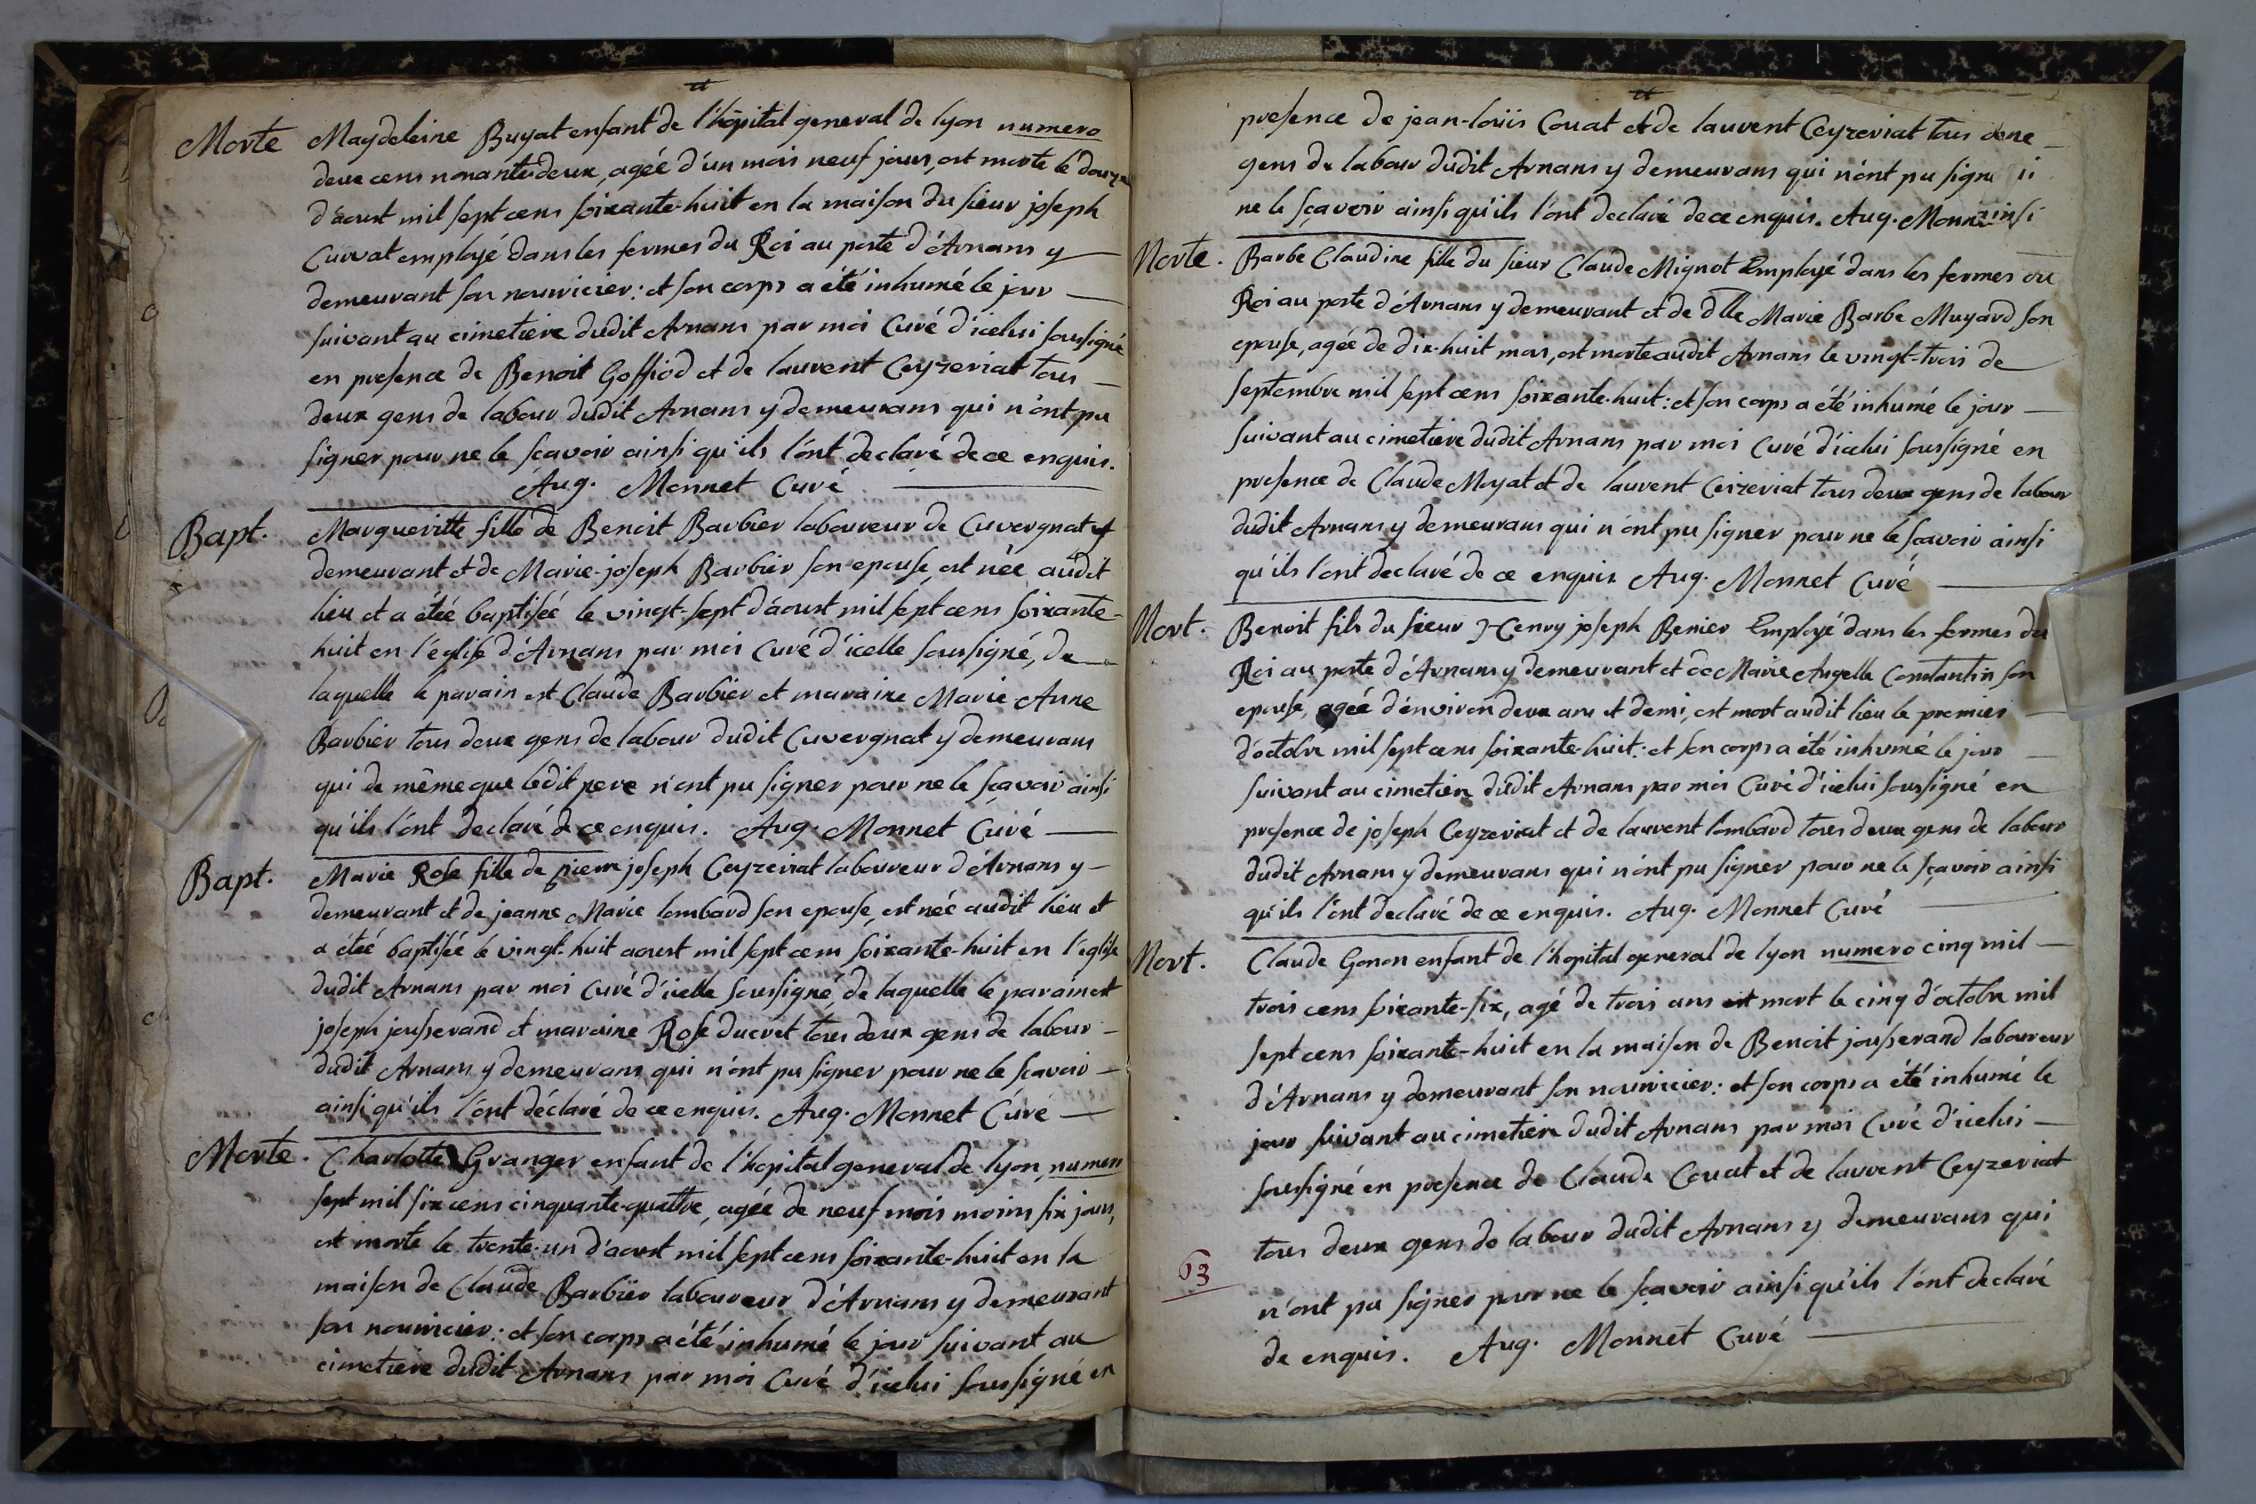 Morte Maydeleine Buyat enfant de l'hôpital general de lyon numero
deux cens nonante-deux, agéé d'un mois neuf jours, est morte le douze
d'aoust mil sept cens soixante-huit en la maison du sieur joseph
Curvat employé dans les fermes du Roi au poste d'Arnans y
demeurant son nouricier: et son corps a été inhumé le jour
suivant au cimetiere dudit Arnans par moi Curé d'icelui soussigné
en presence de Benoit Goffiod et de laurent Ceyzeriat tous
deux gens de labour dudit Arnans y demeurans qui n'ont pu
signer pour ne le sçavoir ainsi qu'ils l'ont declaré de ce enquis.
Aug. Monnet Curé
Bapt. Margueritte fille de Benoit Barbier laboureur de Cuvergnat y
demeurant et de Marie-joseph Barbier son epouse, est née audit
lieu et a étéé baptiséé le vingt-sept d'aoust mil sept cens soixante-
huit en l'église d'Arnans par moi Curé d'icelle soussigné, de
laquelle le parain est Claude Barbier et maraine Marie Anne
Barbier tous deux gens de labour dudit Cuvergnat y demeurans
qui de même que ledit pere n'ont pu signer pour ne le sçavoir ainsi
qu'ils l'ont declaré de ce enquis. Aug. Monnet Curé
Bapt. Marie Rose fille de pierre joseph Ceyzeriat laboureur d'Arnans y
demeurant et de jeanne Marie lombard son epouse, est néé audit lieu et
a étéé baptiséé le vingt-huit aoust mil sept cens soixante-huit en l'église
dudit Arnans par moi Curé d'icelle soussigné, de laquelle le parain est
joseph jousserand et maraine Rose ducret tous deux gens de labour
dudit Arnans y demeurans qui n'ont pu signer pour ne le sçavoir
ainsi qu'ils l'ont déclaré de ce enquis. Aug. Monnet Curé
Morte. Charlotte Granger enfant de l'hopital general de lyon, numero
sept mil six cens cinquante-quattre, agéé de neuf mois moins six jours,
est morte le trente-un d'aoust mil sept cens soixante-huit en la
maison de Claude Barbier laboureur d'Arnans y demeurant
son nouricier: et son corps a été inhumé le jour suivant au
cimetiere dudit Arnans par moi Curé d'icelui soussigné en
presence de jean-loüis Couat et de laurent Ceyzeriat tous
gens de labour dudit Arnans y demeurans qui n'ont pu
ne le sçavoir ainsi qu'ils l'ont declaré de ce enquis. Aug. ainsi
Morte. Barbe Claudine fille du sieur Claude Mignot Employé dans les fermes du
Roi au poste d'Arnans y demeurant et de dlle Marie Barbe Muyard son
epouse, agéé de dix-huit mois, est morte audit Arnans le vingt-trois de
septembre mil sept cens soixante-huit: et son corps a été inhumé le jour
suivant au cimetiere dudit Arnans par moi Curé d'icelui soussigné en
presence de Claude Moyat et de laurent Ceizeriat tous deux gens de labour
dudit Arnans y demeurans qui n'ont pu signer pour ne le sçavoir ainsi
qu'ils l'ont declaré de ce enquis. Aug. Monnet Curé
Mort. Benoit fils du sieur Henry joseph Benier Employé dans les fermes du
Roi au poste d'Arnans y demeurant et de Marie Angelle Constantin son
epouse, agéé d'environ deux ans et demi, est mort audit lieu le premier
d'octobre mil sept cens soixante-huit: et son corps a été inhumé le jour
suivant au cimetiere dudit Arnans par moi Curé d'icelui soussigné en
presence de joseph Ceyzeriat et de laurent lombard tous deux gens de labour
dudit Arnans y demeurans qui n'ont pu signer pour ne le sçavoir ainsi
qu'ils l'ont declaré de ce enquis. Aug. Monnet Curé
Mort. Claude Gonon enfant de l'hopital general de lyon numero cinq mil
trois cens soixante-six, agé de trois ans est mort le cinq d'octobre mil
sept cens soixante-huit en la maison de Benoit jousserand laboureur
d'Arnans y demeurant son nouricier: et son corps a été inhumé le
jour suivant au cimetiere dudit Arnans par moi Curé d'icelui
soussigné en presence de Claude Couat et de laurent Ceyzeriat
tous deux gens de labour dudit Arnans y demeurans qui
63
n'ont pu signer pour ne le sçavoir ainsi qu'ils l'ont declaré
de enquis. Aug. Monnet Curé